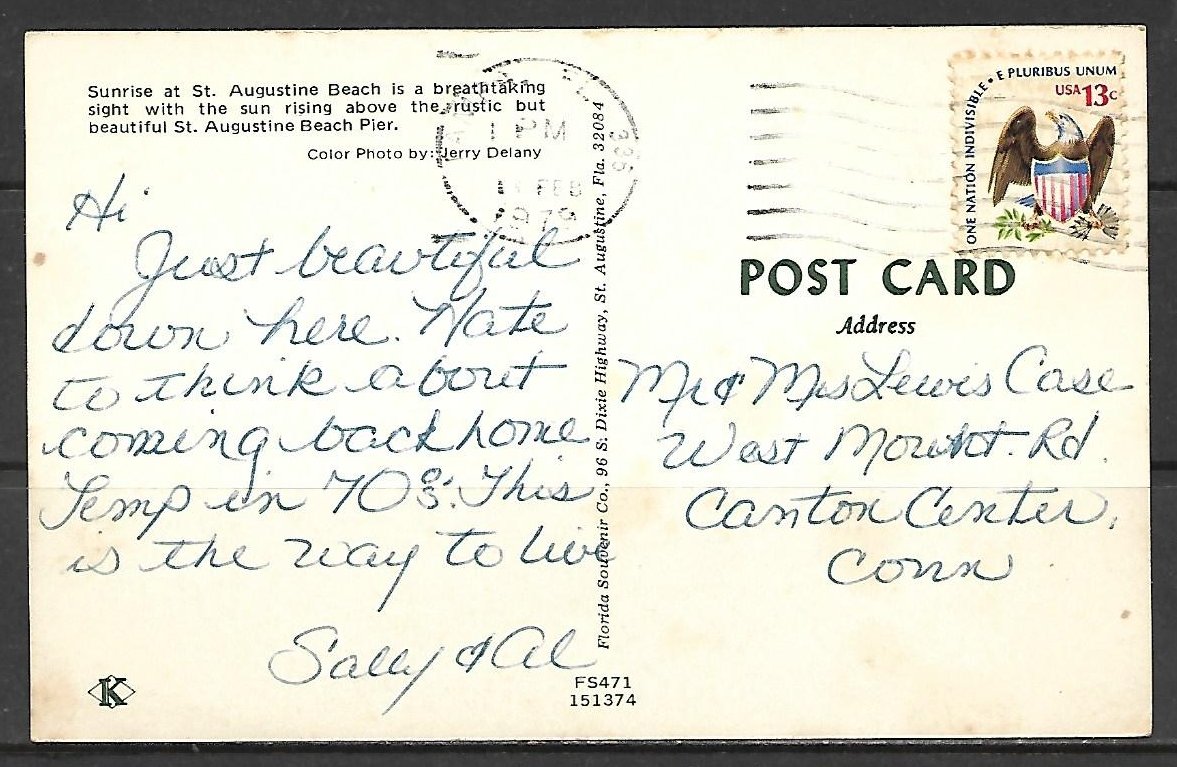 Sunrise at St. Augustine Beach is a breathtaking
sight with the sun rising above the rustic but
beautiful St. Augustine Beach Pier.
Color Photo by: Jerry Delany
Hi
Just beautiful
down here. Hate
to think about
coming back home
Temp in 70°s. This
is the way to live
Sally & Al
K
FS471
151374
Florida Souvenir Co., 96 S. Dixie Highway, St. Augustine, Fla. 32084
PM
FEB
1979
ONE NATION INDIVISIBLE • E PLURIBUS UNUM
USA 13c
POST CARD
Address
Mr & Mrs Lewis Case
West Mount. Rd.
Canton Center,
Conn